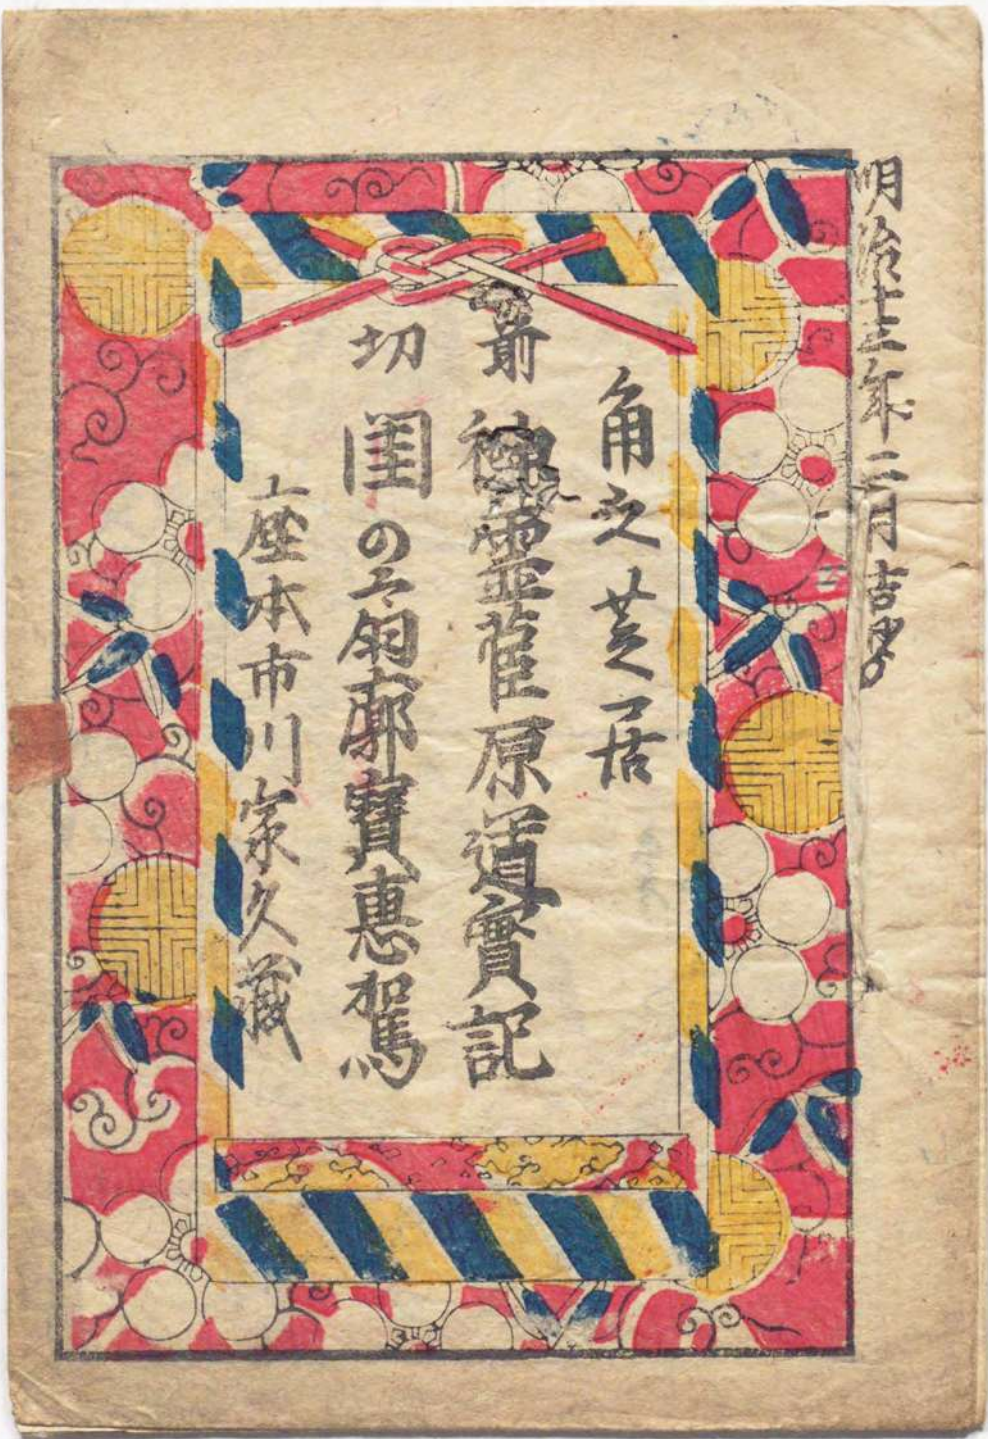 明治十三年二月吉日
角之芝居
前
神霊菅原道實記
切
閨の扇廓寶惠駕
座本市川家久蔵